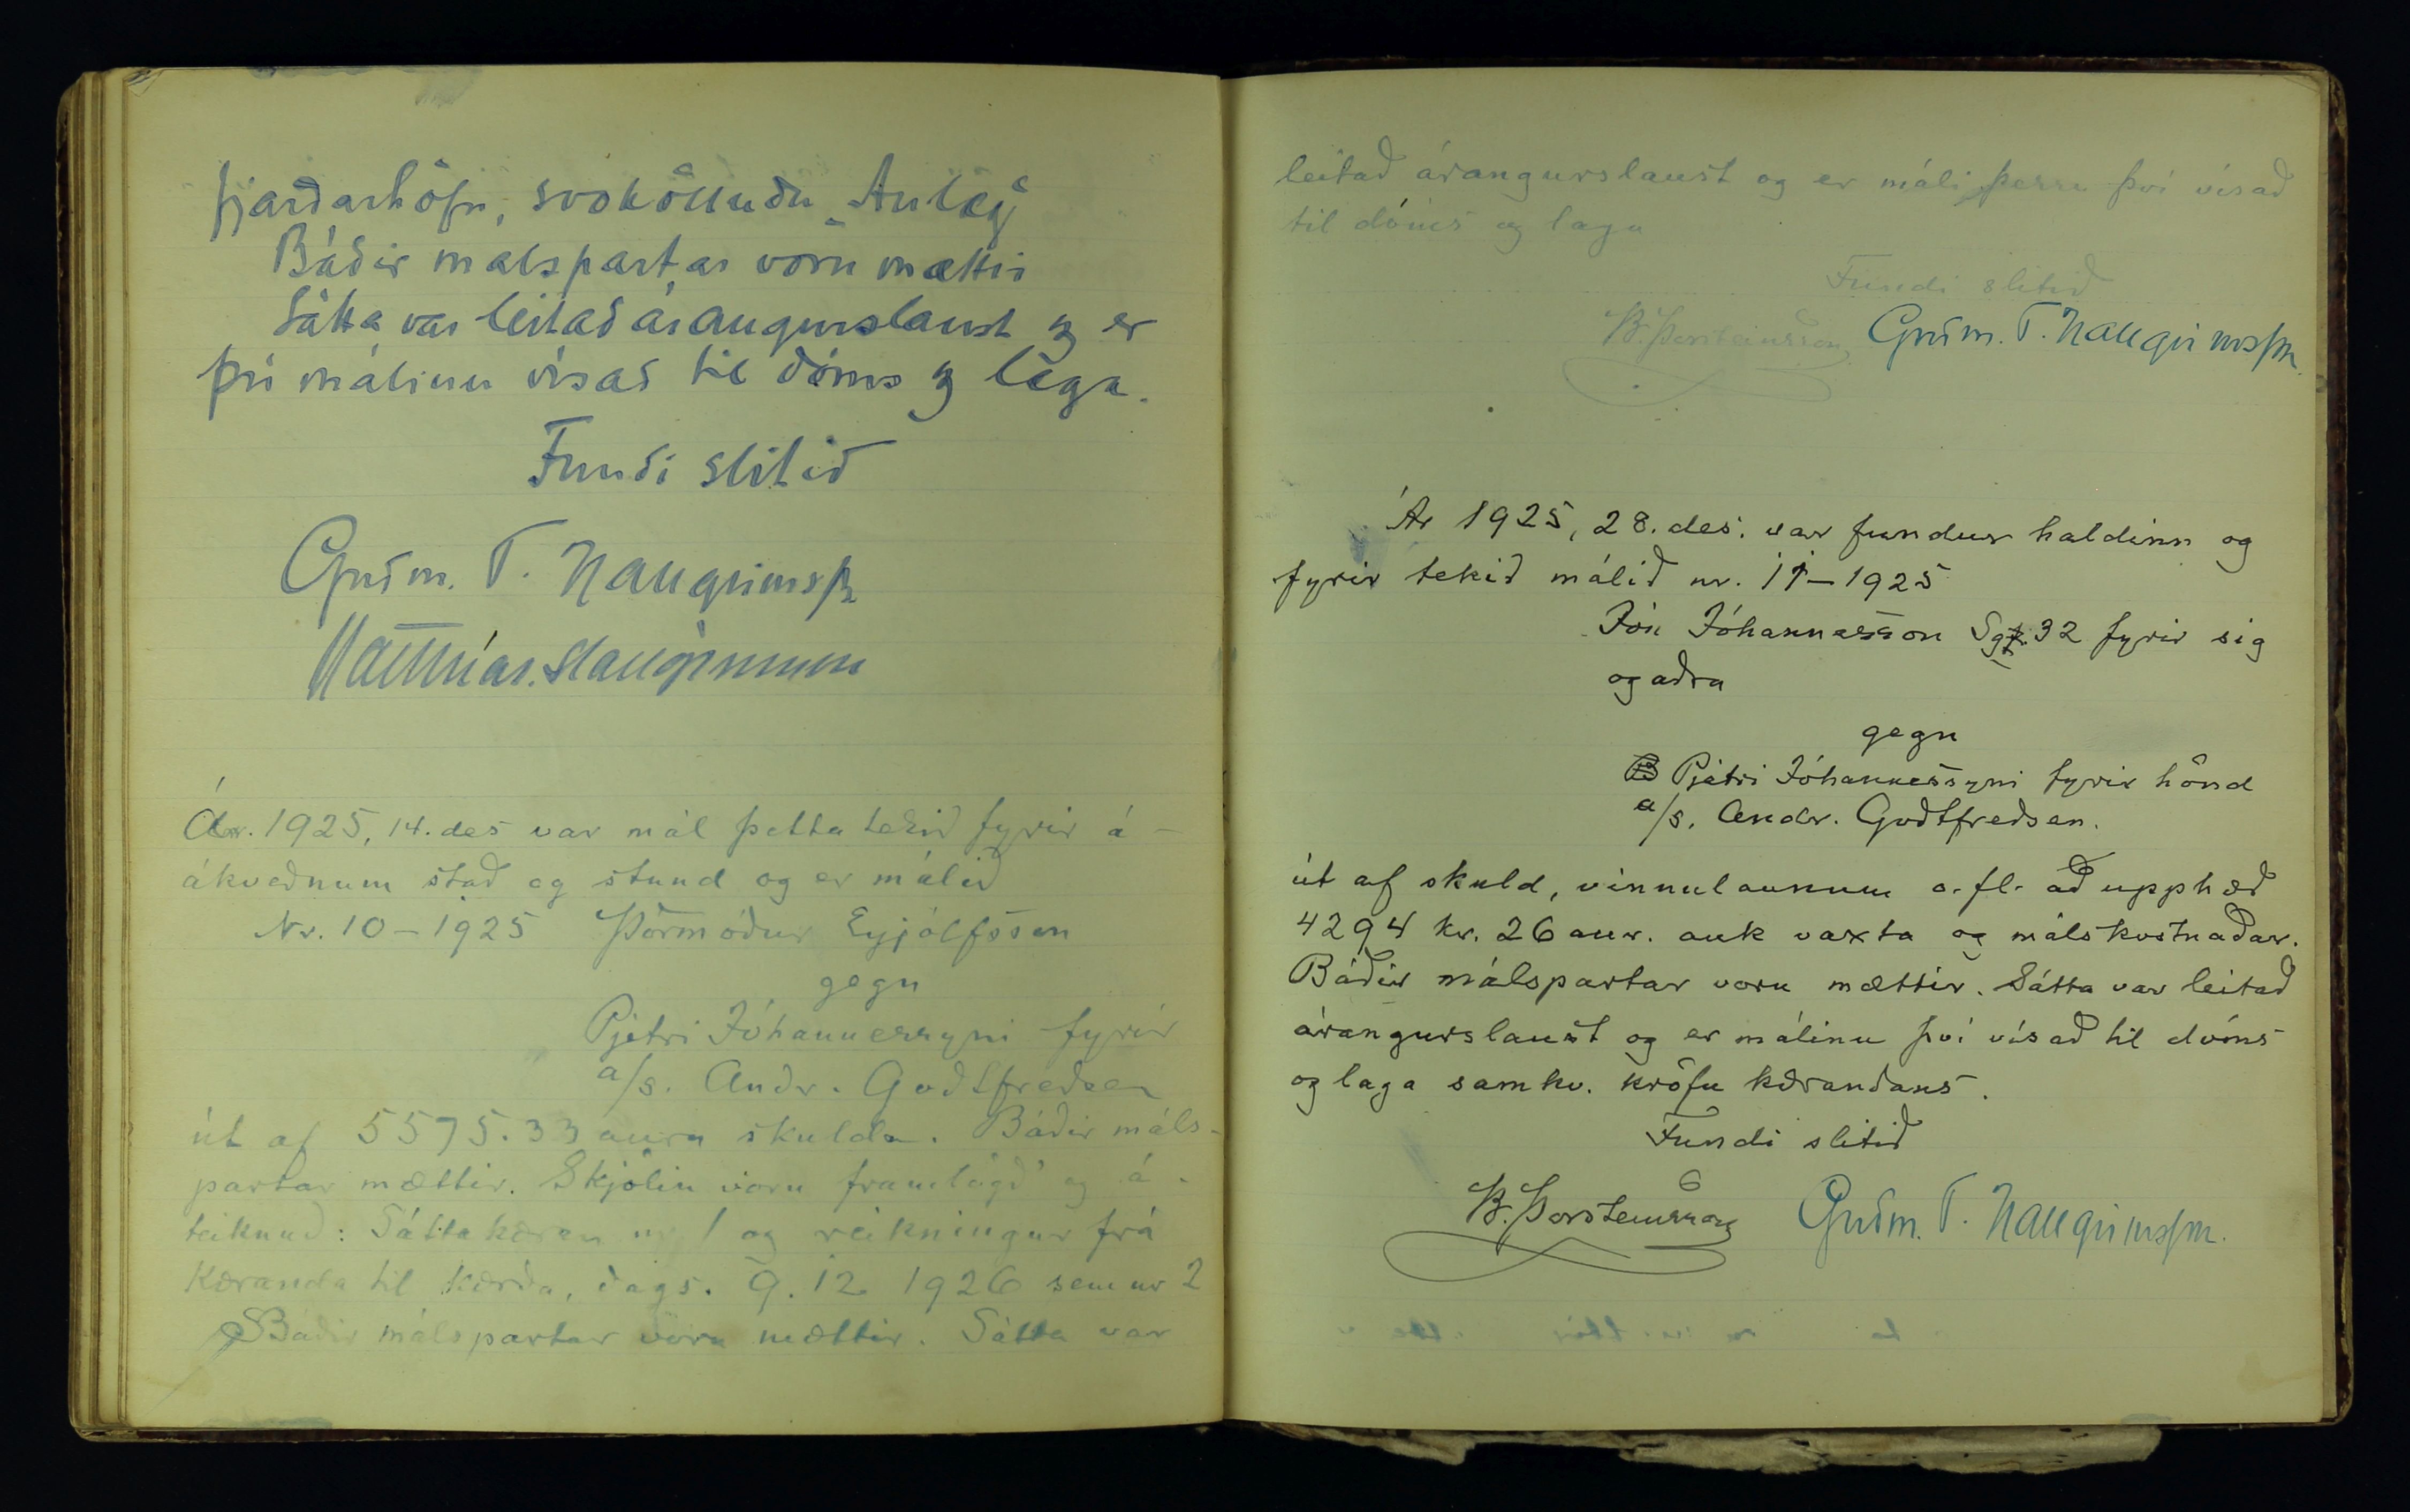 fjarðarhöfn, svokölluðu „Anleg“
Báðir malspartar voru mættir
Sátta var leitað árangurslaust og er
því málinu vísað til dóms og laga.
Fundi slitið
Guðm. T. Hallgrímsson
Matthías Hallgrímsson
Ár. 1925, 14. des var mál þetta tekið fyrir á-
ákveðnum stað og stund og er málið
Nr. 10 – 1925 Þormóður Eyjólfsson
gegn
Pjetri Jóhannessyni fyrir
a/s. Andr. Godtfredsen
út af 5575.33 aura skulda. Báðir máls-
partar mættir. Skjölin voru framlögð og á-
teiknuð: Sáttakæran nr 1 og reikningur frá
Kæranda til kærða, dags. 9. 12 1926 sem nr 2
Báðir málspartar voru mættir. Sátta var
leitað árangurslaust og er máli þessu því vísað
til dóms og laga
Fundi slitið
B. Þorsteinsson Guðm. T. Hallgrímsson.
Ár 1925, 28. des. var fundur haldinn og
fyrir tekið málið nr. 11 – 1925
Jón Jóhannesson Sgf. 32 fyrir sig
og aðra
gegn
Pjetri Jóhannessyni fyrir hönd
a/s. Andr. Godtfredsen.
út af skuld, vinnulaunum o. fl. að upphæð
4294 kr. 26 aur. auk vaxta og málskostnaðar.
Báðir málspartar voru mættir. Sátta var leitað
árangurslaust og er málinu því vísað til dóms
og laga samkv. kröfu kærandans.
Fundi slitið
B. Þorsteinsson Guðm. T. Hallgrímsson.